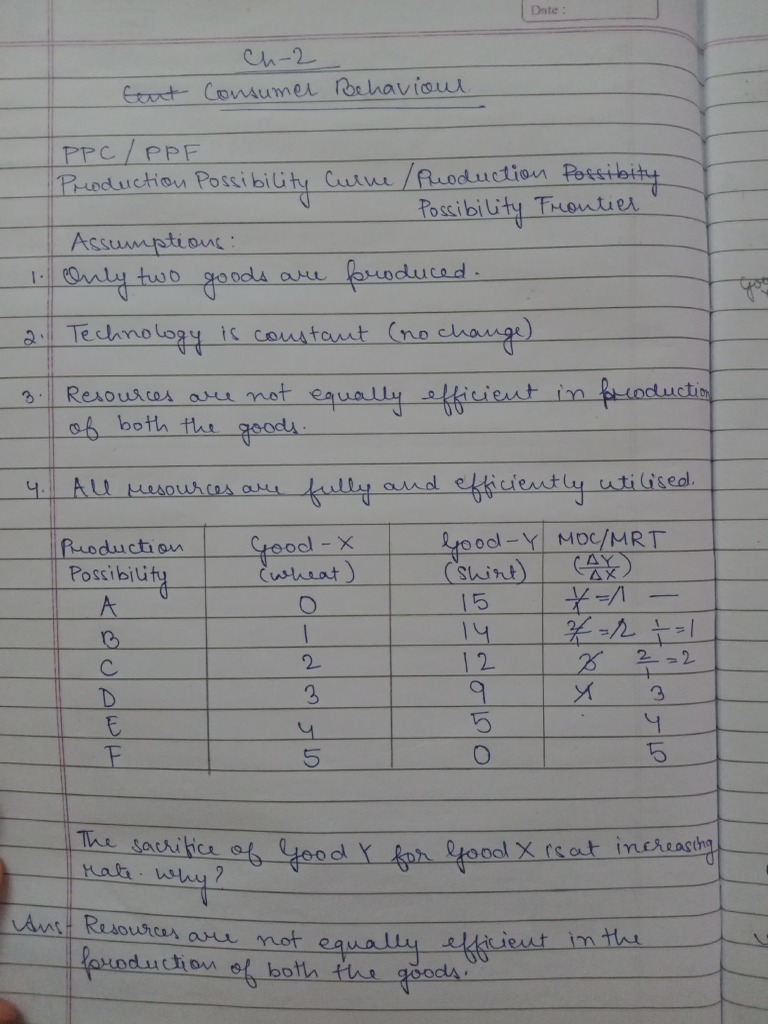 Date :
Ch-2
Cont Consumer Behaviour
PPC / PPF
Production Possibility Curve / Production Possibity
Possibility Frontier
Assumptions :
1. Only two goods are produced.
2. Technology is constant (no change)
3. Resources are not equally efficient in production
of both the goods.
4. All resources are fully and efficiently utilised.
Production Good-X Good-Y MOC/MRT
Possibility (wheat) (Shirt) (ΔY/ΔX)
A 0 15 1/1 = 1 —
B 1 14 2/1 = 2 1/1 = 1
C 2 12 3 2/1 = 2
D 3 9 4 3
E 4 5 4
F 5 0 5
The sacrifice of Good Y for Good X is at increasing
rate. Why?
Ans- Resources are not equally efficient in the
production of both the goods.